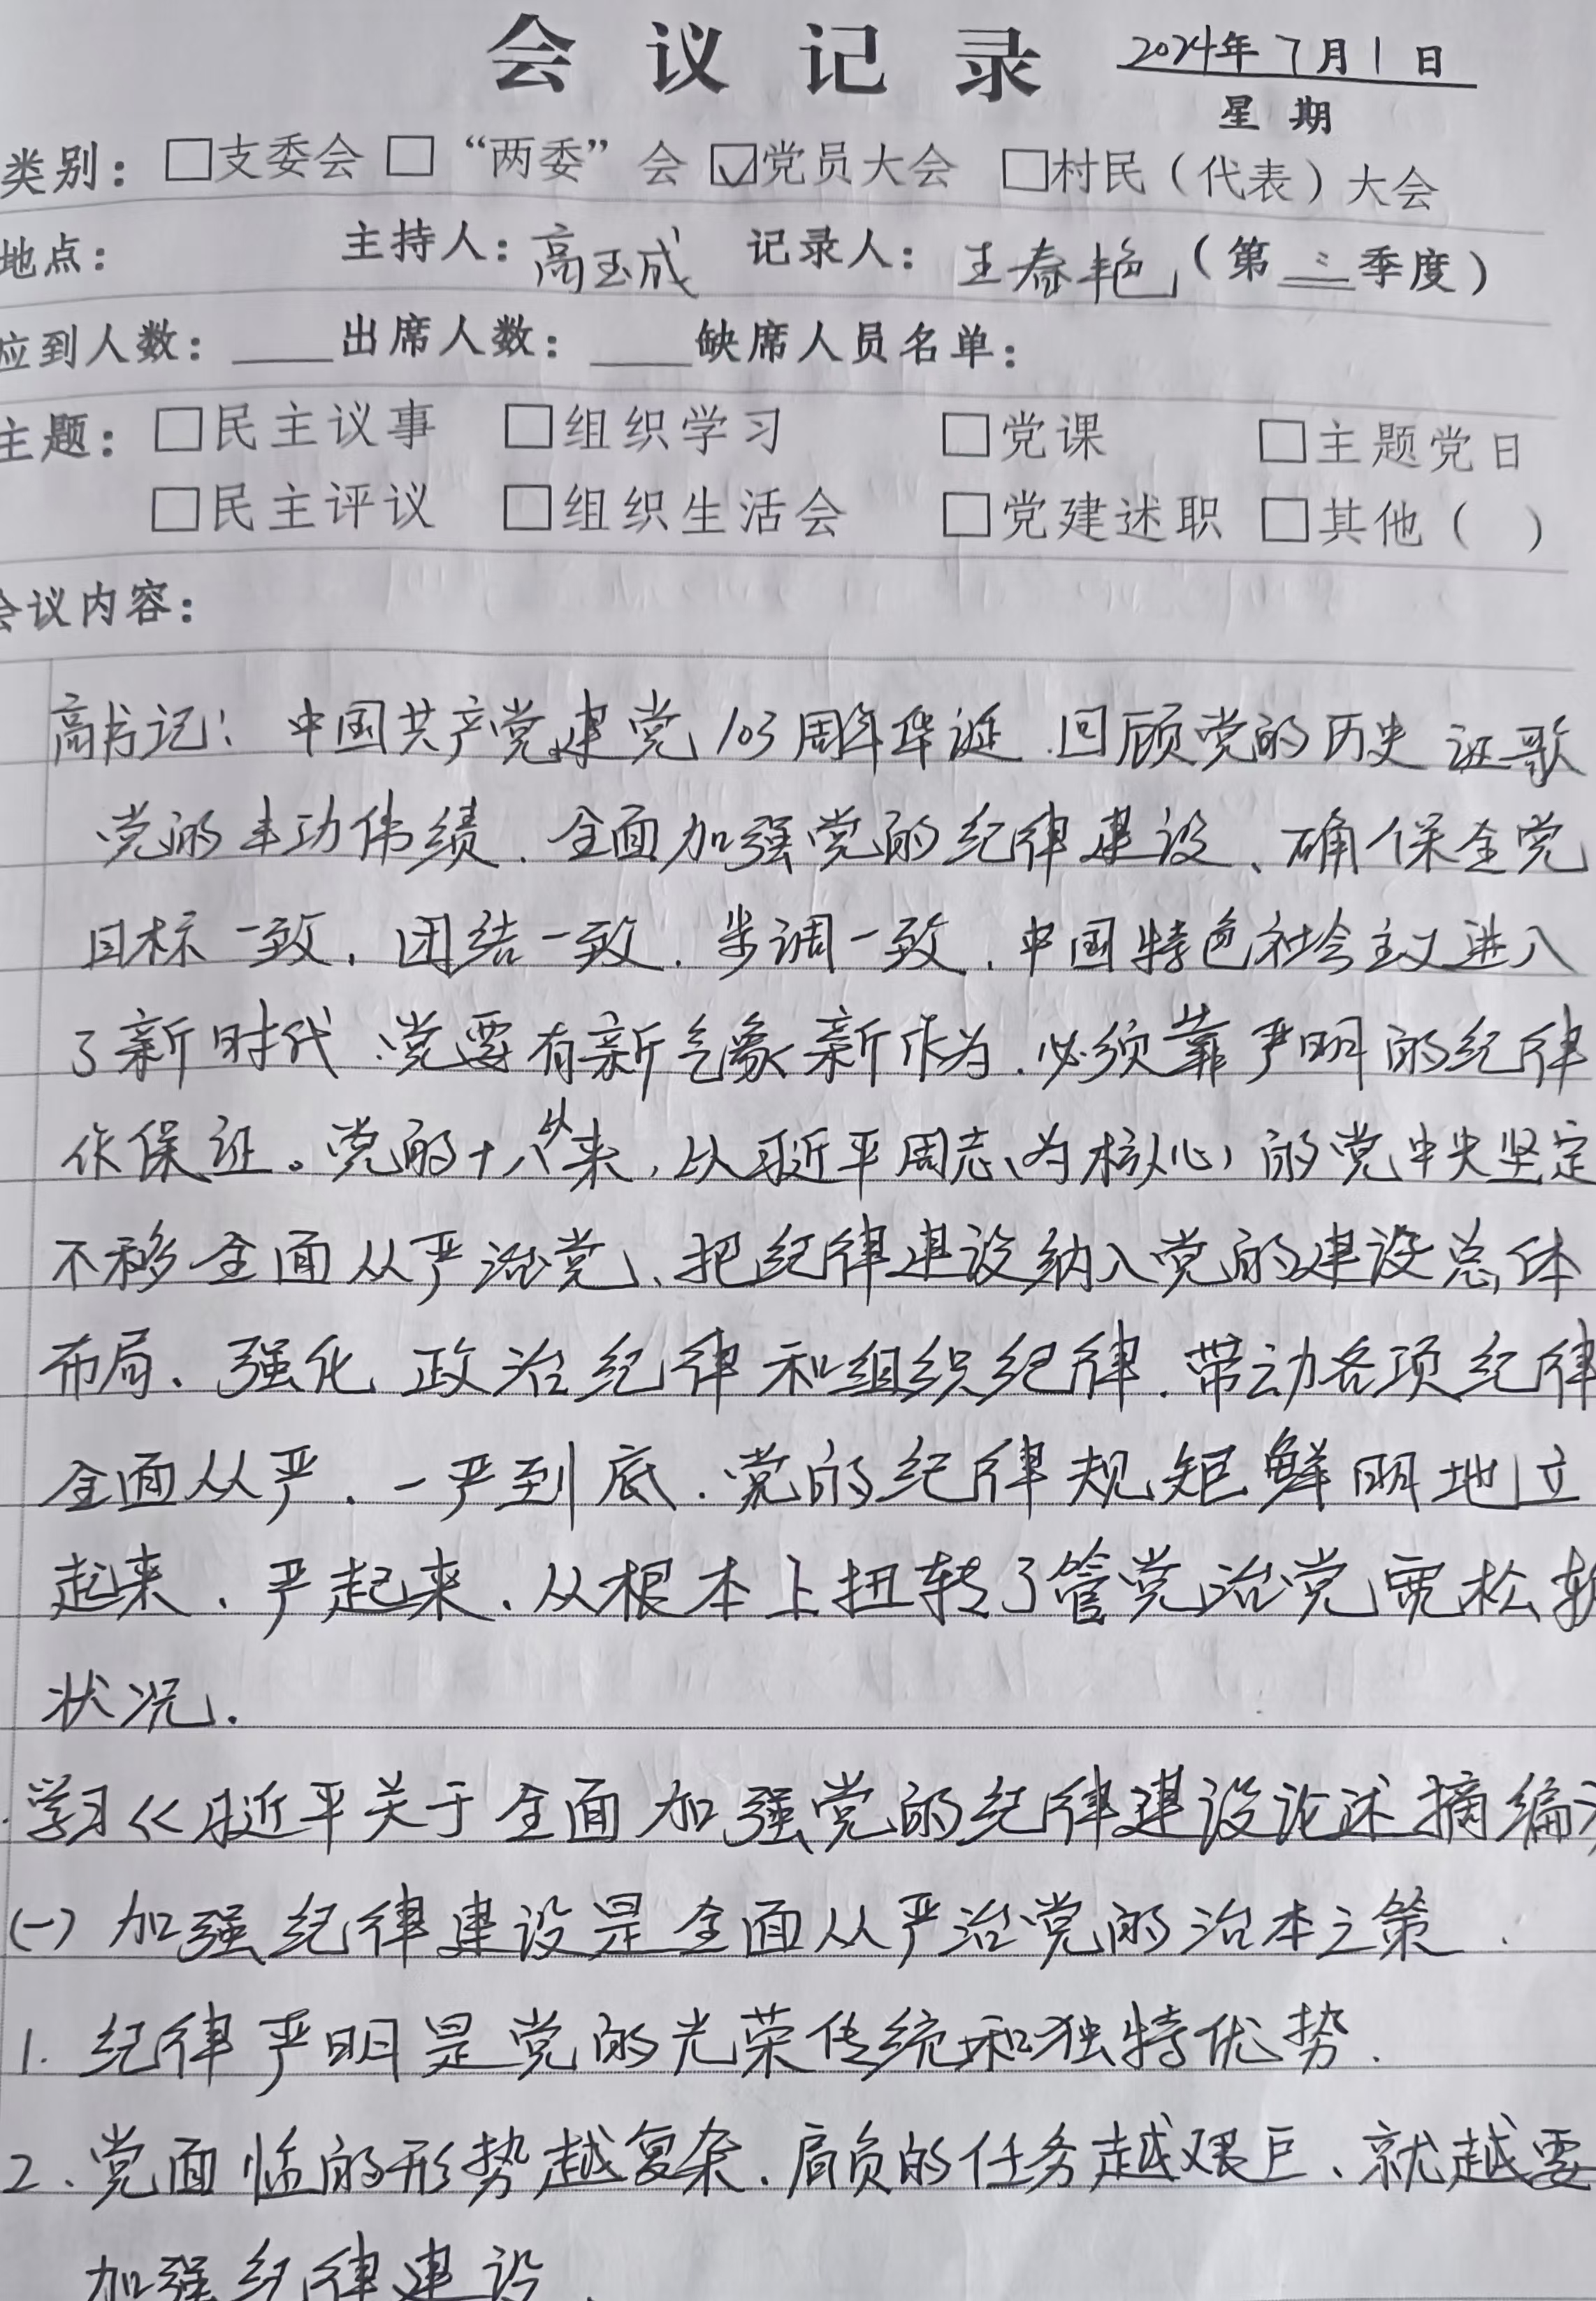 会议记录 2024年7月1日
星期
类别：□支委会 □“两委”会 ☑党员大会 □村民（代表）大会
地点： 主持人：高玉成 记录人：王春艳（第三季度）
应到人数：____出席人数：____缺席人员名单：
主题：□民主议事 □组织学习 □党课 □主题党日
□民主评议 □组织生活会 □党建述职 □其他（ ）
会议内容：
高书记：中国共产党建党103周年华诞.回顾党的历史 讴歌
党的丰功伟绩.全面加强党的纪律建设、确保全党
目标一致.团结一致.步调一致.中国特色社会主义进入
了新时代.党要有新气象新作为.必须靠严明的纪律
作保证。党的十八以来,以习近平同志为核心的党中央坚定
不移全面从严治党、把纪律建设纳入党的建设总体
布局、强化政治纪律和组织纪律.带动各项纪律
全面从严.一严到底.党的纪律规矩鲜明地立
起来.严起来.从根本上扭转了管党治党宽松软
状况.
学习《习近平关于全面加强党的纪律建设论述摘编》
(一)加强纪律建设是全面从严治党的治本之策.
1.纪律严明是党的光荣传统和独特优势.
2.党面临的形势越复杂.肩负的任务越艰巨、就越要
加强纪律建设